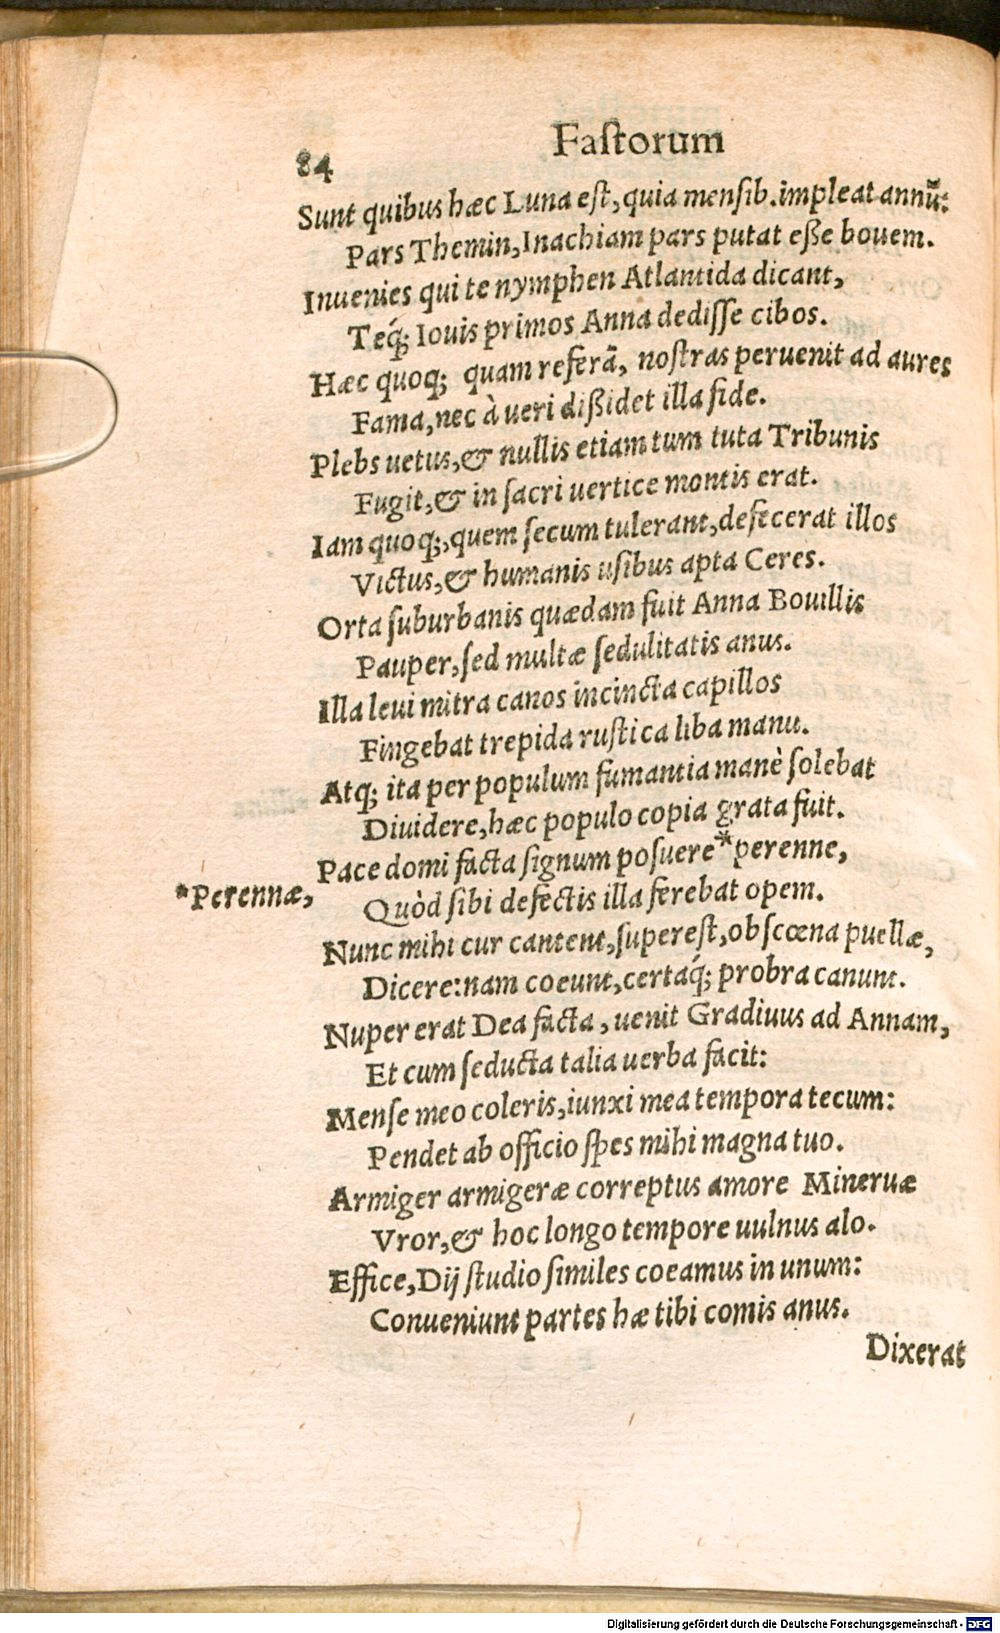 84
Faſtorum
Sunt quibus hæc Luna eſt, quia menſib. impleat annũ:
Pars Themin, Inachiam pars putat eße bouem.
Inuenies qui te nymphen Atlantida dicant,
Teq́; Iouis primos Anna dediſſe cibos.
Hæc quoq; quam referã, noſtras peruenit ad aures
Fama, nec à ueri dißidet illa fide.
Plebs uetus, & nullis etiam tum tuta Tribunis
Fugit, & in ſacri uertice montis erat.
Iam quoq;, quem ſecum tulerant, defecerat illos
Victus, & humanis uſibus apta Ceres.
Orta ſuburbanis quædam fuit Anna Bouillis
Pauper, ſed multæ ſedulitatis anus.
Illa leui mitra canos incincta capillos
Fingebat trepida ruſtica liba manu.
Atq; ita per populum fumantia manè ſolebat
Diuidere, hæc populo copia grata fuit.
Pace domi facta ſignum poſuere *perenne,
*Perennæ,
Quòd ſibi defectis illa ferebat opem.
Nunc mihi cur cantent, ſupereſt, obſcœna puellæ,
Dicere: nam coeunt, certaq́; probra canunt.
Nuper erat Dea facta, uenit Gradiuus ad Annam,
Et cum ſeducta talia uerba facit:
Menſe meo coleris, iunxi mea tempora tecum:
Pendet ab officio ſpes mihi magna tuo.
Armiger armigeræ correptus amore Mineruæ
Vror, & hoc longo tempore uulnus alo.
Effice, Dij ſtudio ſimiles coeamus in unum:
Conueniunt partes hæ tibi comis anus.
Dixerat
Digitalisierung gefördert durch die Deutsche Forschungsgemeinschaft - DFG